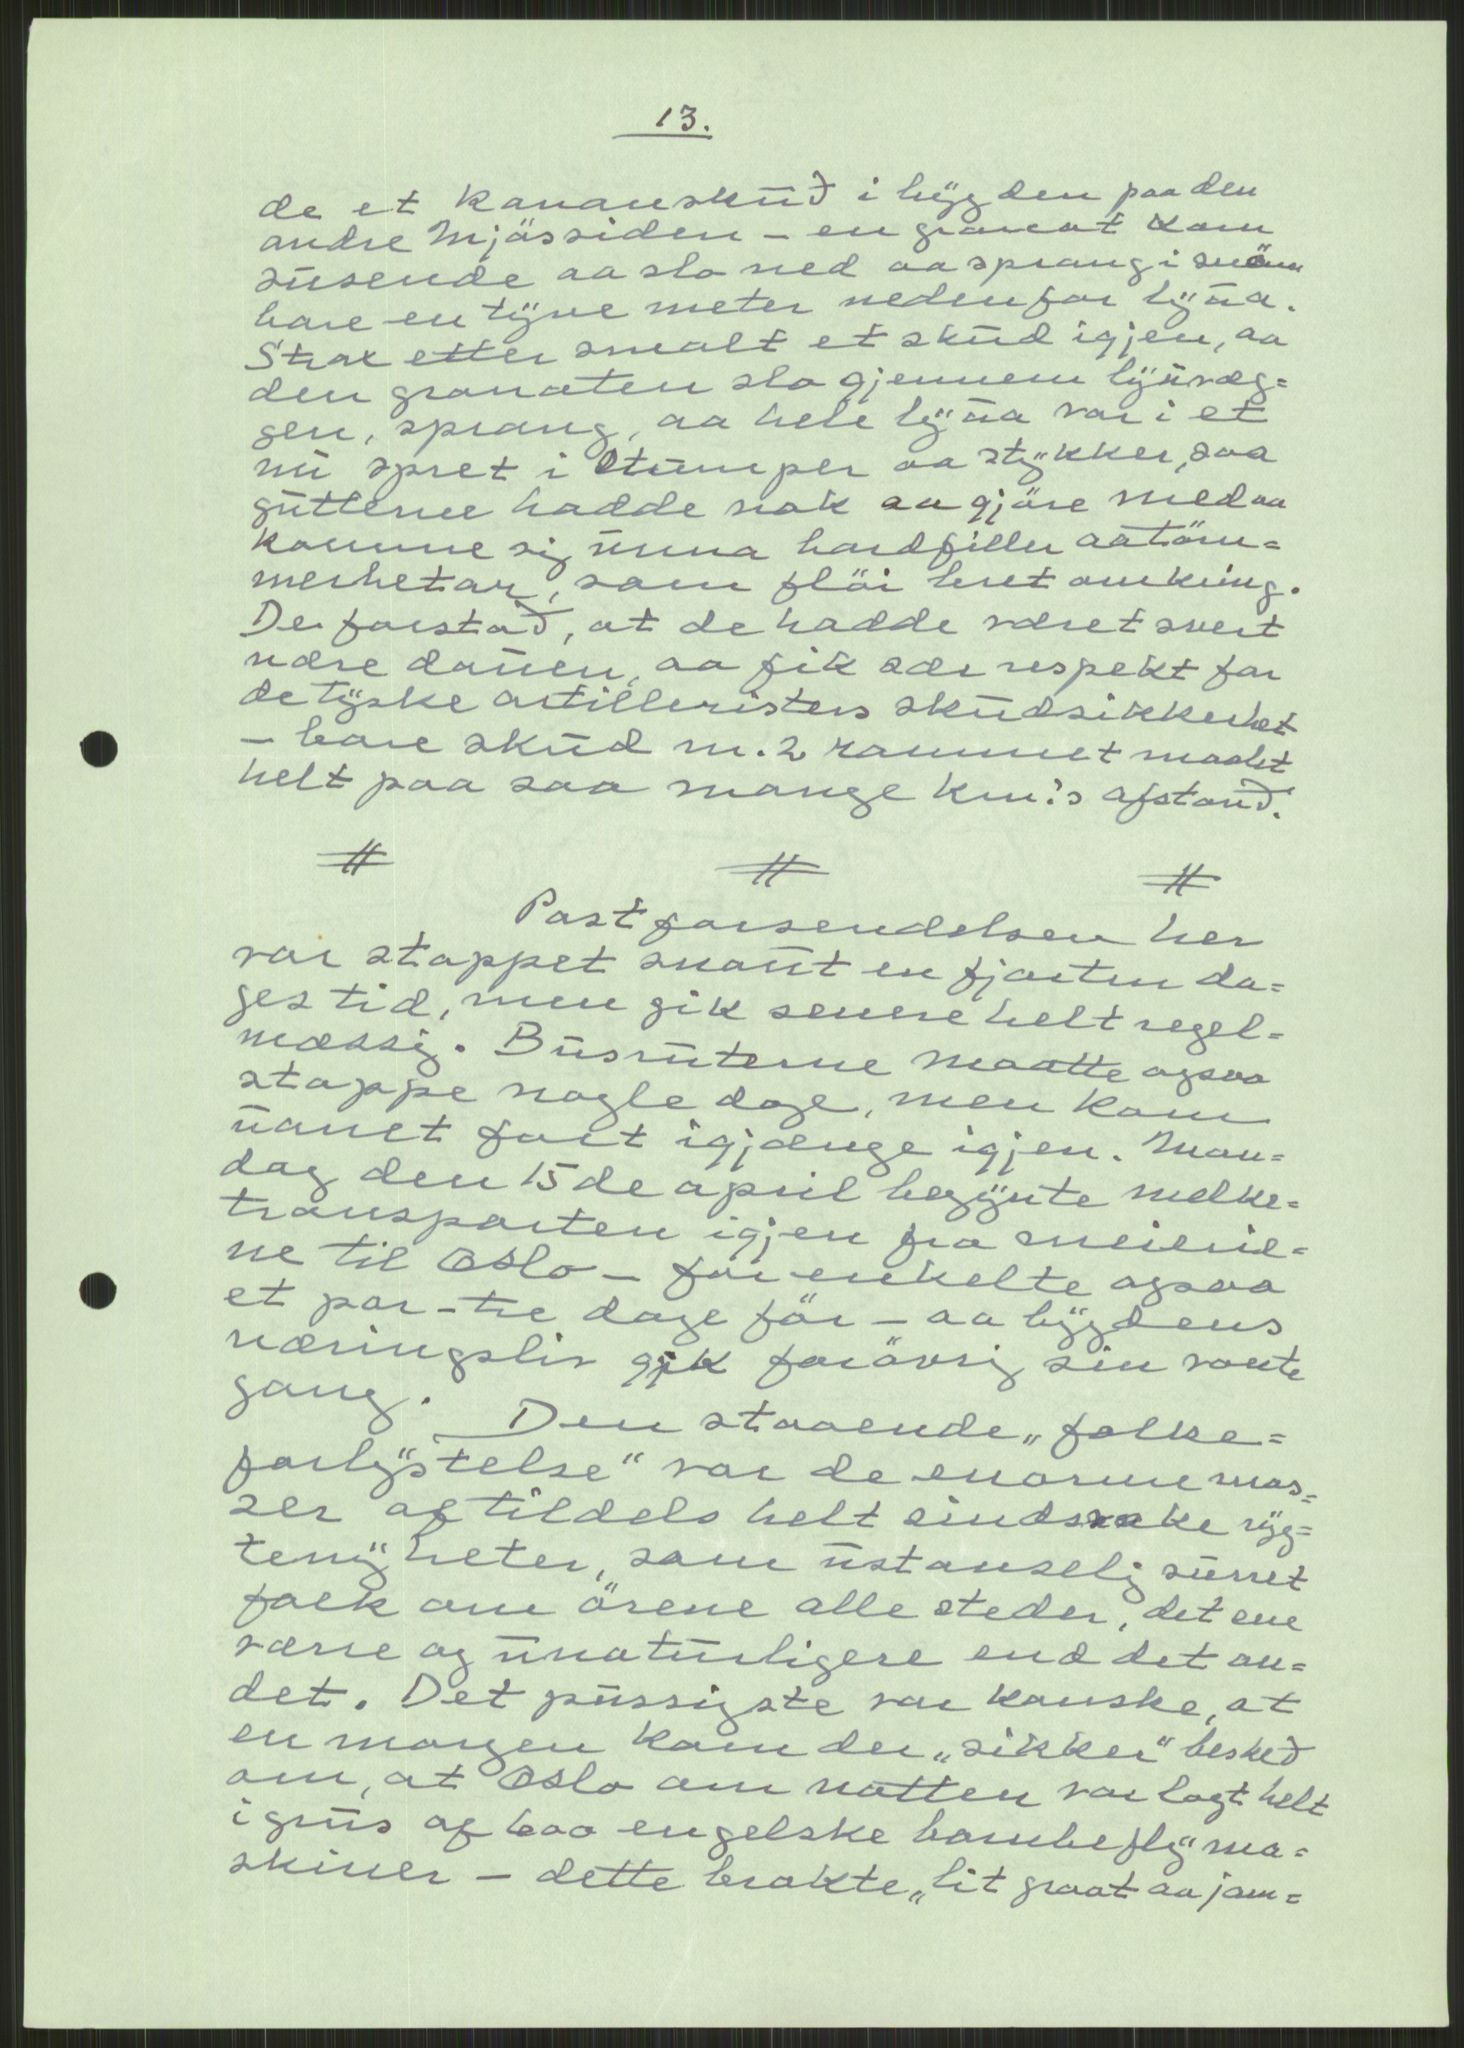 13.
de et kanonskud i bygden paa den
andre Mjössiden – en granat kom
susende aa slo ned aa sprang i snöen
bare en tyve meter nedenfor hyua.
Strax etter smalt et skud igjen, aa
den granaten slo gjennem hyuvæg=
gen, sprang, aa hele hyua var i et
nu spret i stumper aa stykker, saa
gutterne hadde nok aa gjöre med aa
komme sig unna bordfiller aa töm=
merbetar, som flöi bret omkring.
De forstod, at de hadde været svert
nære døuen, aa fik sær respekt for
de tyske artilleristers skudsikkerhet
– bare skud nr. 2 rammet maalet
helt paa saa mange km:s afstand.
# # #
Postforsendelsen her
var stoppet snaut en fjorten da=
ges tid, men gik senere helt regel=
mæssig. Busruterne maatte ogsaa
stoppe nogle dage, men kom
uanet fort igjænge igjen. Man=
dag den 15de april begynte melke=
transporten igjen fra meierie=
ne til Oslo – for enkelte ogsaa
et par-tre dage för – aa bygdens
næringsliv gik forövrig sin vante
gang.
Den staaende „folke=
forlystelse“ var de enorme mas=
ser af tildels helt sindsvake ryg=
tenyheter, som ustanselig surret
folk om örene alle steder, det ene
værre og unaturligere end det an=
det. Det pussigste var kanske, at
en morgen kom der „sikker“ besked
om, at Oslo om natten var lagt helt
i grus af 600 engelske bombeflyma=
skiner – dette brakte „lit graat aa jam=